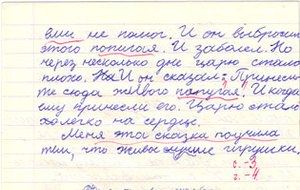 ему не помог. И он выбросил
этого попугая. И заболел. Но
через несколько дне царю стало
плохо. И он сказал: "Принеси
те сюда живого попугая". И когда
ему принесли его. Царю стало
легко на сердце.
Меня эта сказка поучила
тем, что живое лучше игрушки.
о. -3
г. -4